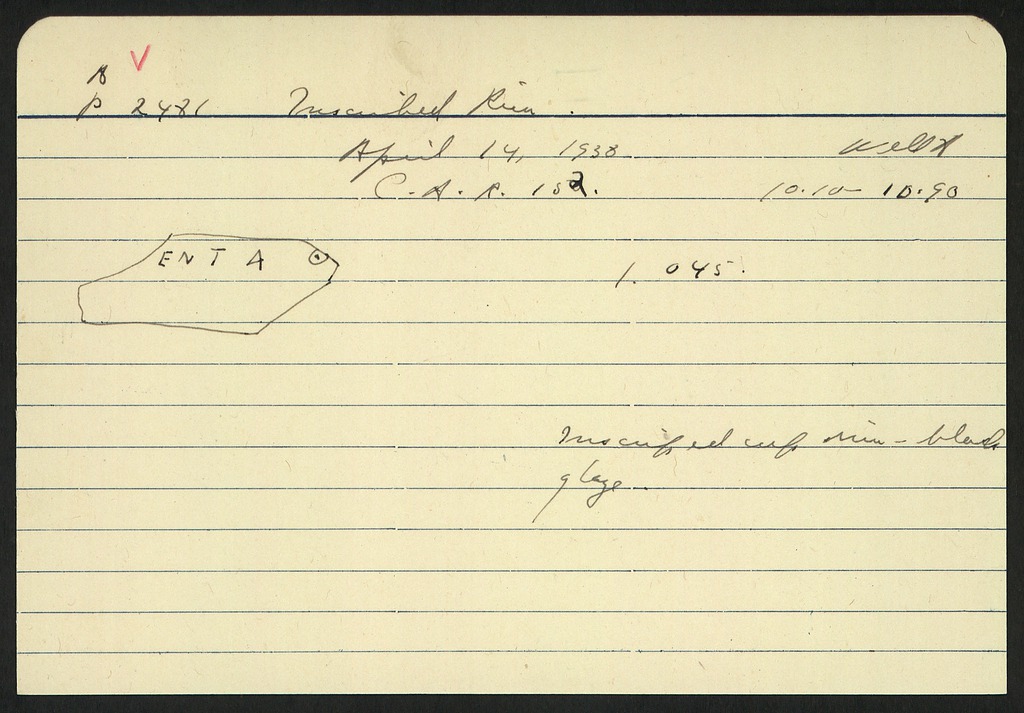 A V
P 2481 Inscribed Rim.
April 14, 1938 Well A
C.A.R. 182. 10.10 - 10.90
ENTA⊙
1. 045.
Inscriped cup rim - black
glaze.